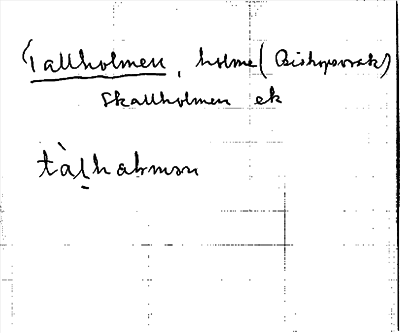 Tallholmen, holme (Biskopsvrak)
Skallholmen ek
tàl̠hɔlmən